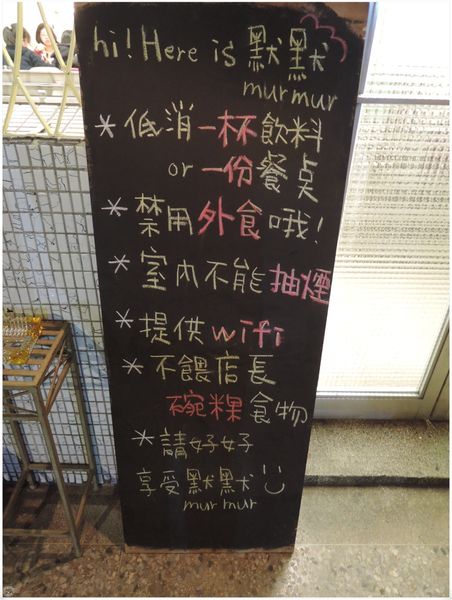 hi! Here is 默默
murmur
*低消一杯飲料
or 一份餐桌
*禁用外食哦!
*室內不能抽煙
*提供wifi
*不餵店長
碗粿食物
*請好好
享受默默
murmur